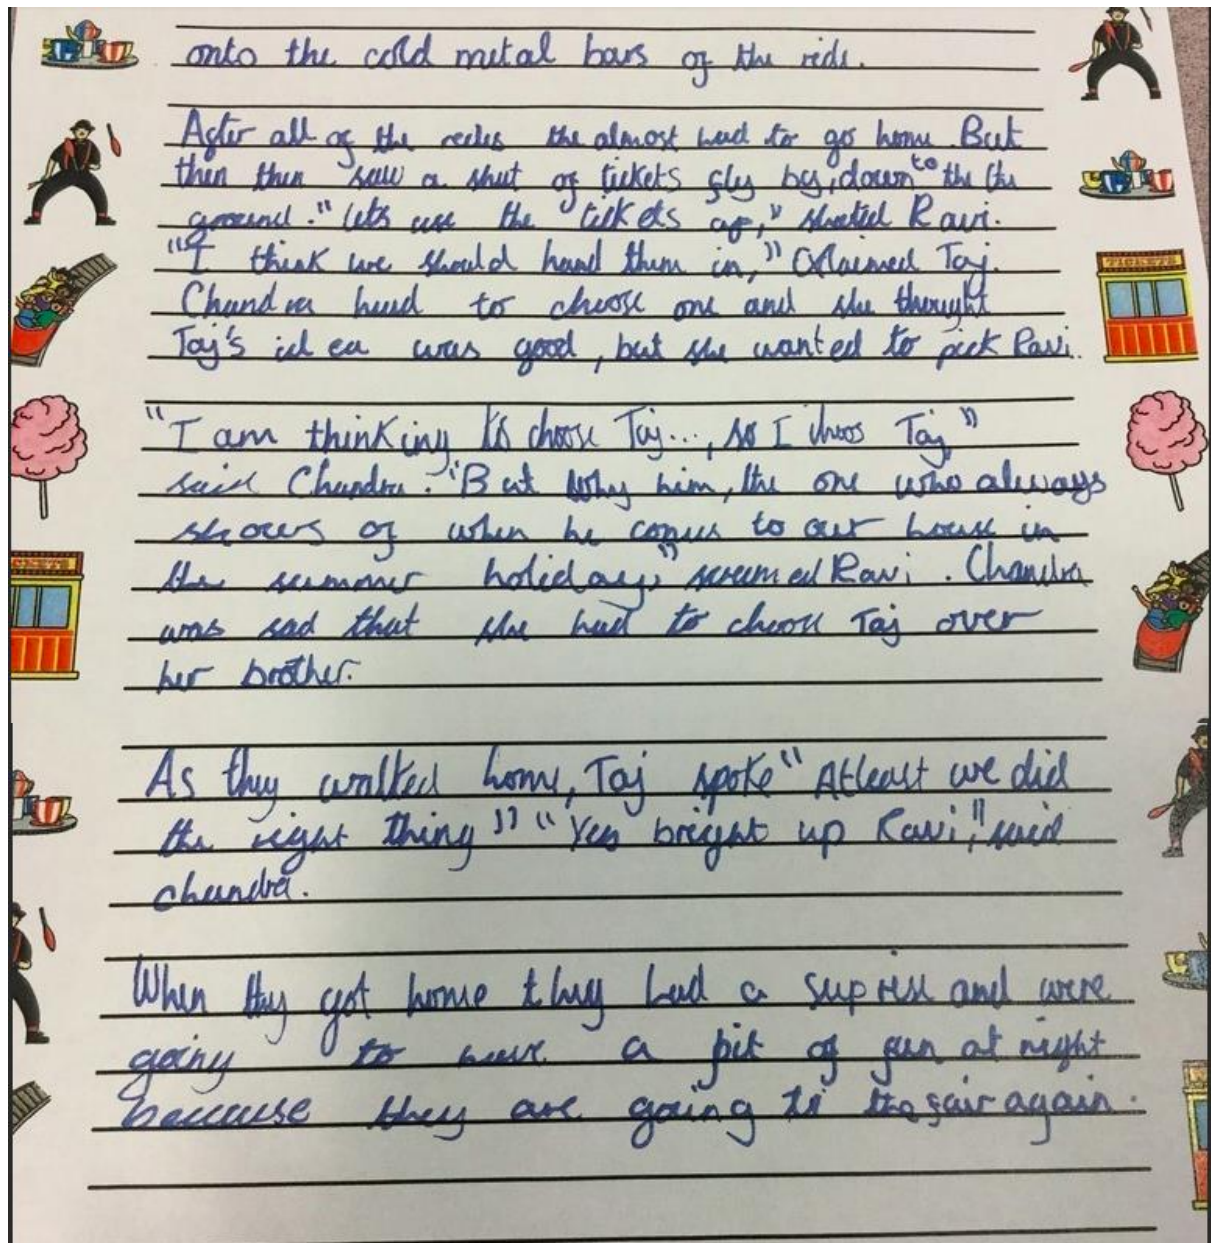 onto the cold metal bars of the ride.
After all of the rides the almost had to go home. But
then then saw a shut of tickets fly by, down to the the
ground. "lets use the tickets up," shouted Ravi.
"I think we should hand them in," Claimed Taj.
Chandra had to choose one and she thought
Taj's idea was good, but she wanted to pick Ravi.
"I am thinking to choose Taj..., so I choos Taj"
said Chandra. "But Why him, the one who always
shows of when he comes to our house in
the summer holiday," screamed Ravi. Chandra
was sad that she had to choose Taj over
her brother.
As they walked home, Taj spoke "Atleast we did
the right thing" "Yes bright up Ravi," said
chandra.
When they got home they had a suprise and were
going to have a bit of fun at night
because they are going to the fair again.
TICKETS